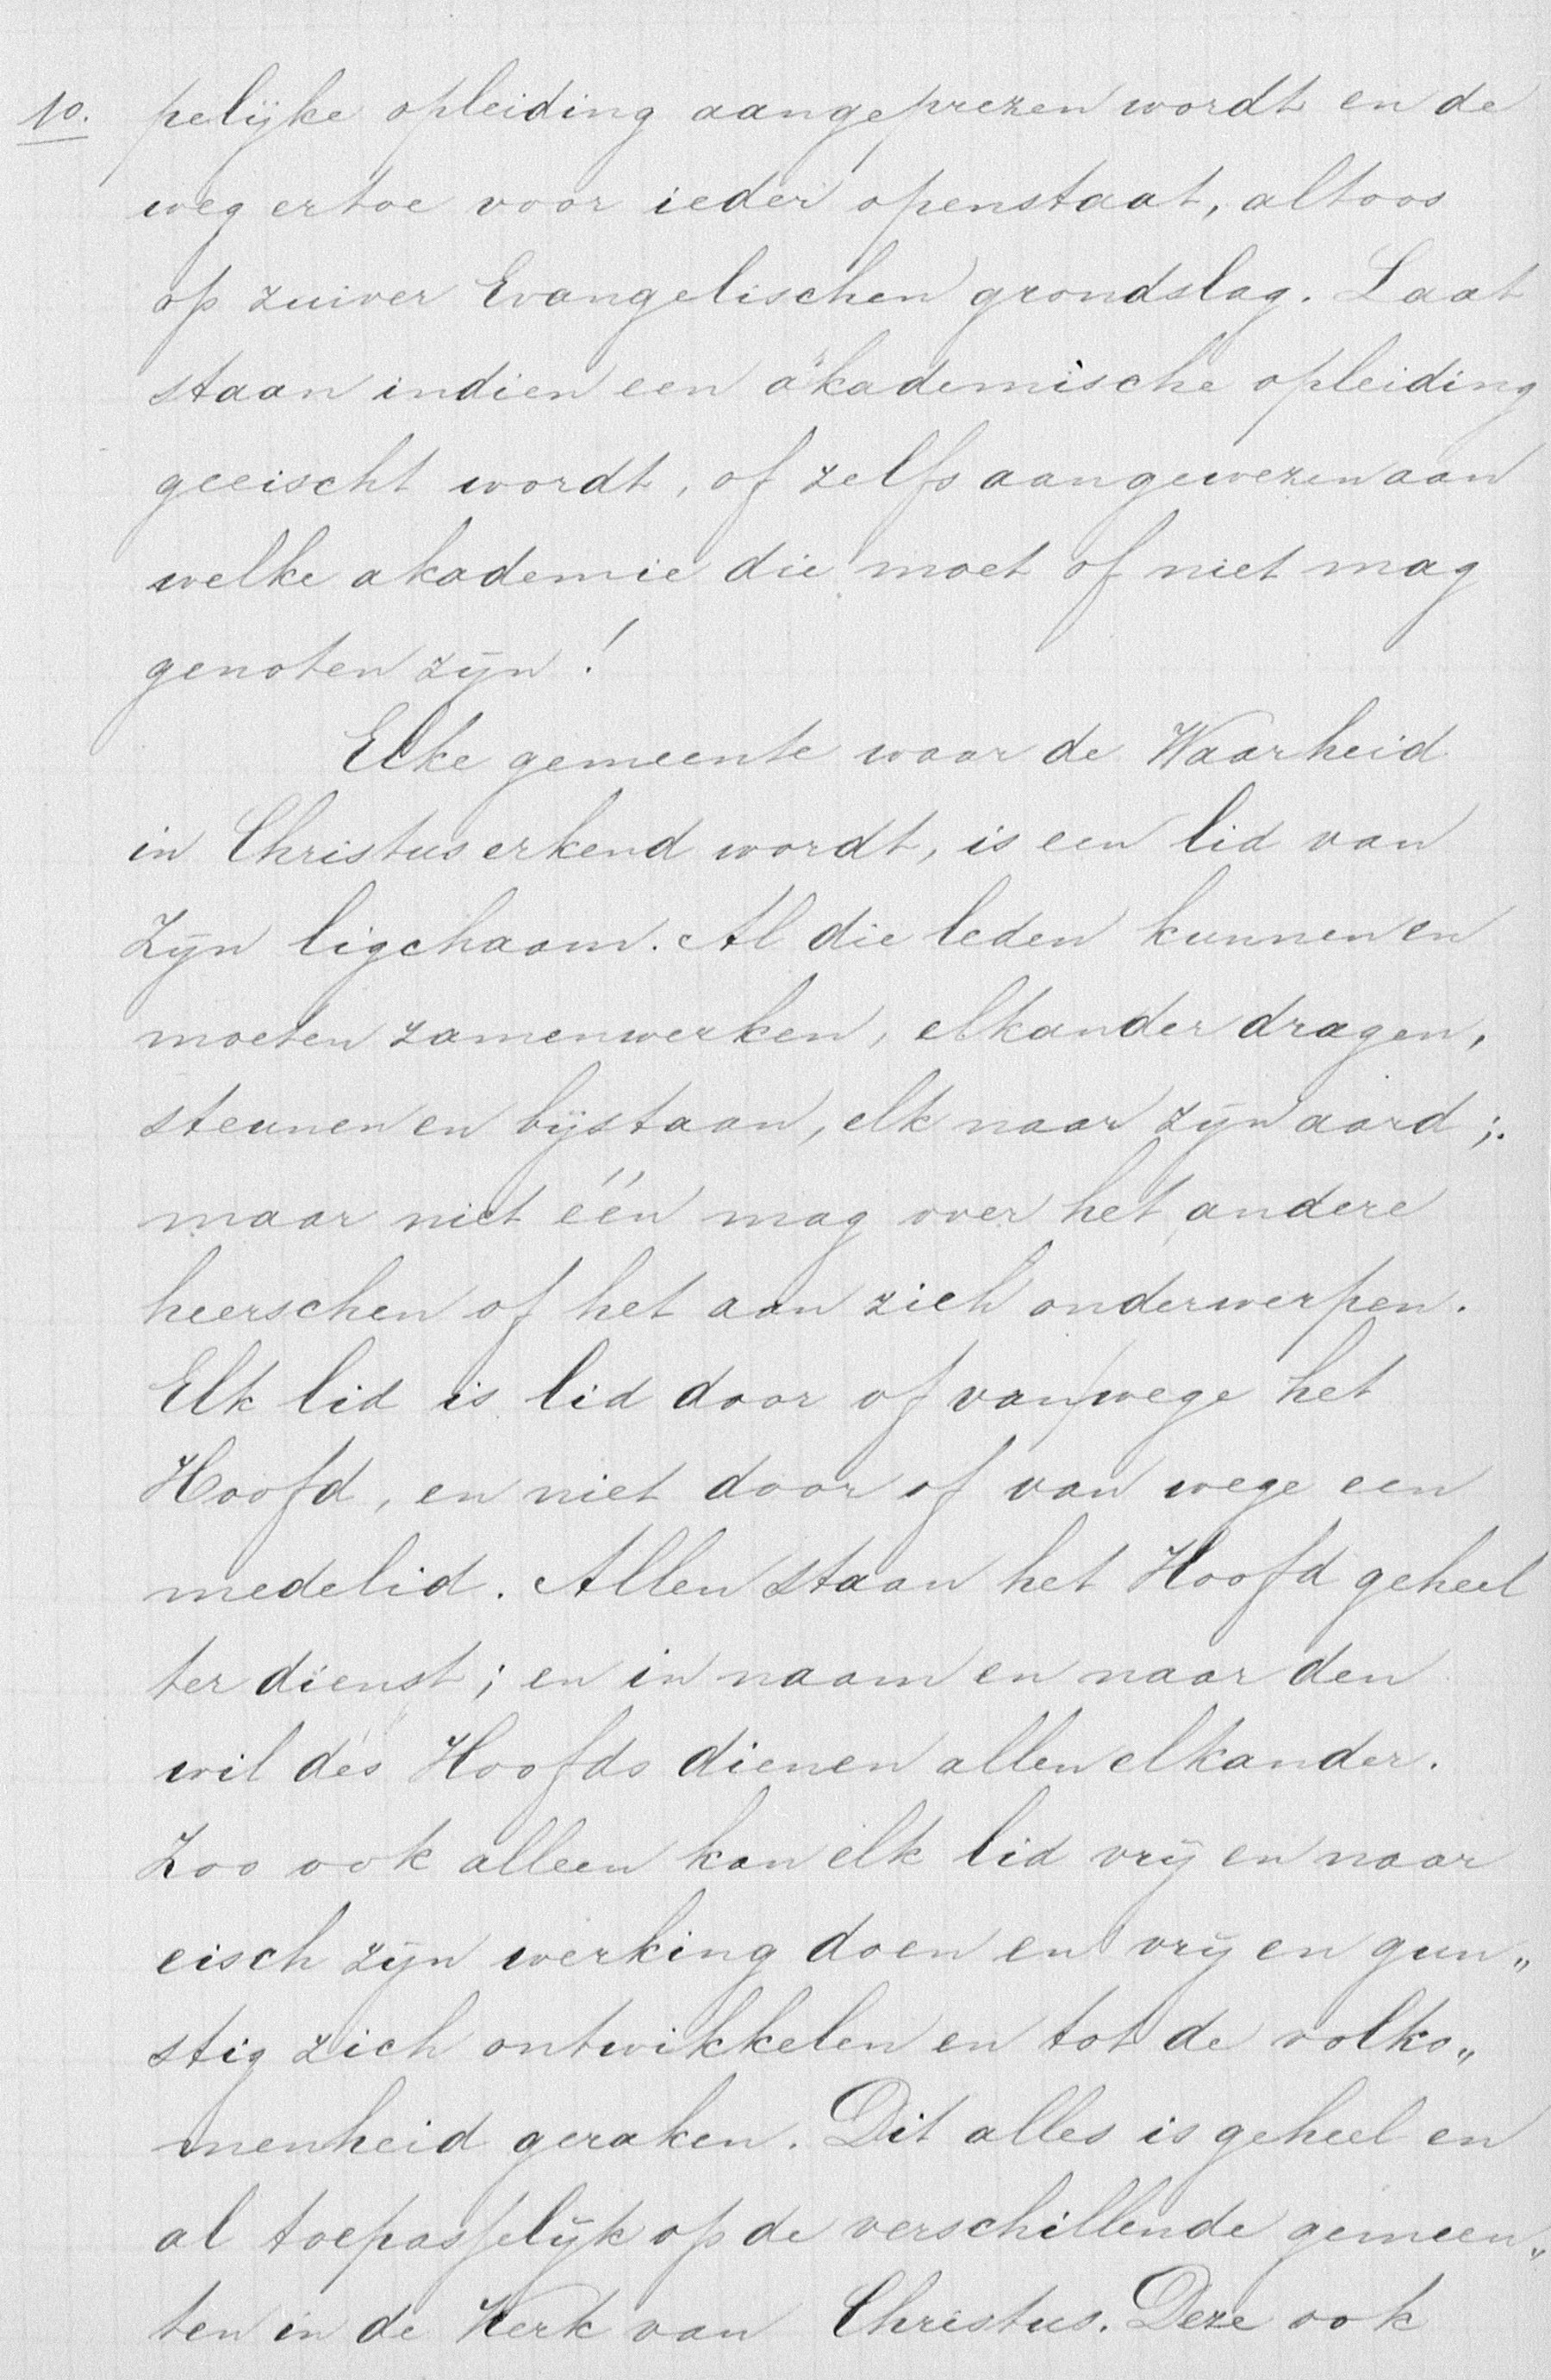 10. pelijke opleiding aangeprezen wordt en de
weg ertoe voor ieder openstaat, altoos
op zuiver Evangelischen grondslag. Laat
staan indien een akademische opleiding
geeischt wordt, of zelfs aangewezen aan
welke akademie die moet of niet mag
genoten zijn!
Elke gemeente waar de Waarheid
in Christus erkend wordt, is een lid van
Zijn ligchaam. Al die leden kunnen en
moeten zamenwerken, elkander dragen,
steunen en bijstaan, elk naar zijn aard;
maar niet één mag over het andere
heerschen of het aan zich onderwerpen.
Elk lid is lid door of van wege het
Hoofd, en niet door of van wege een
medelid. Allen staan het Hoofd geheel
ter dienst; en in naam en naar den
wil des Hoofds dienen allen elkander.
Zoo ook alleen kan elk lid vrij en naar
eisch zijn werking doen en vrij en gun„
stig zich ontwikkelen en tot de volko„
menheid geraken. Dit alles is geheel en
al toepasselijk op de verschillende gemeen„
ten in de Kerk van Christus. Deze ook